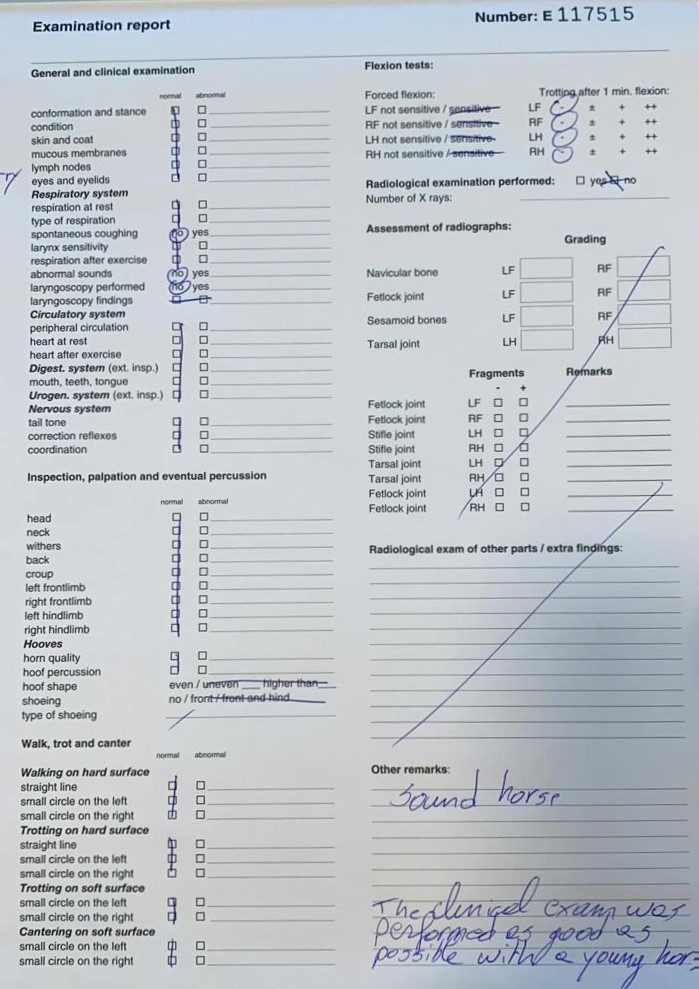 Examination report
Number: E 117515
General and clinical examination
normal abnormal
conformation and stance
condition
skin and coat
mucous membranes
lymph nodes
eyes and eyelids
Respiratory system
respiration at rest
type of respiration
spontaneous coughing no yes
larynx sensitivity
respiration after exercise
abnormal sounds no yes
laryngoscopy performed no yes
laryngoscopy findings
Circulatory system
peripheral circulation
heart at rest
heart after exercise
Digest. system (ext. insp.)
mouth, teeth, tongue
Urogen. system (ext. insp.)
Nervous system
tail tone
correction reflexes
coordination
Inspection, palpation and eventual percussion
normal abnormal
head
neck
withers
back
croup
left frontlimb
right frontlimb
left hindlimb
right hindlimb
Hooves
horn quality
hoof percussion
hoof shape even / uneven ___ higher than
shoeing no / front / front and hind
type of shoeing
Walk, trot and canter
normal abnormal
Walking on hard surface
straight line
small circle on the left
small circle on the right
Trotting on hard surface
straight line
small circle on the left
small circle on the right
Trotting on soft surface
small circle on the left
small circle on the right
Cantering on soft surface
small circle on the left
small circle on the right
Flexion tests:
Forced flexion: Trotting after 1 min. flexion:
LF not sensitive / sensitive LF - ± + ++
RF not sensitive / sensitive RF - ± + ++
LH not sensitive / sensitive LH - ± + ++
RH not sensitive / sensitive RH - ± + ++
Radiological examination performed: yes no
Number of X rays:
Assessment of radiographs:
Grading
Navicular bone LF RF
Fetlock joint LF RF
Sesamoid bones LF RF
Tarsal joint LH RH
Fragments Remarks
- +
Fetlock joint LF
Fetlock joint RF
Stifle joint LH
Stifle joint RH
Tarsal joint LH
Tarsal joint RH
Fetlock joint LH
Fetlock joint RH
Radiological exam of other parts / extra findings:
Other remarks:
Sound horse
The clinical exam was
performed as good as
possible with a young hor